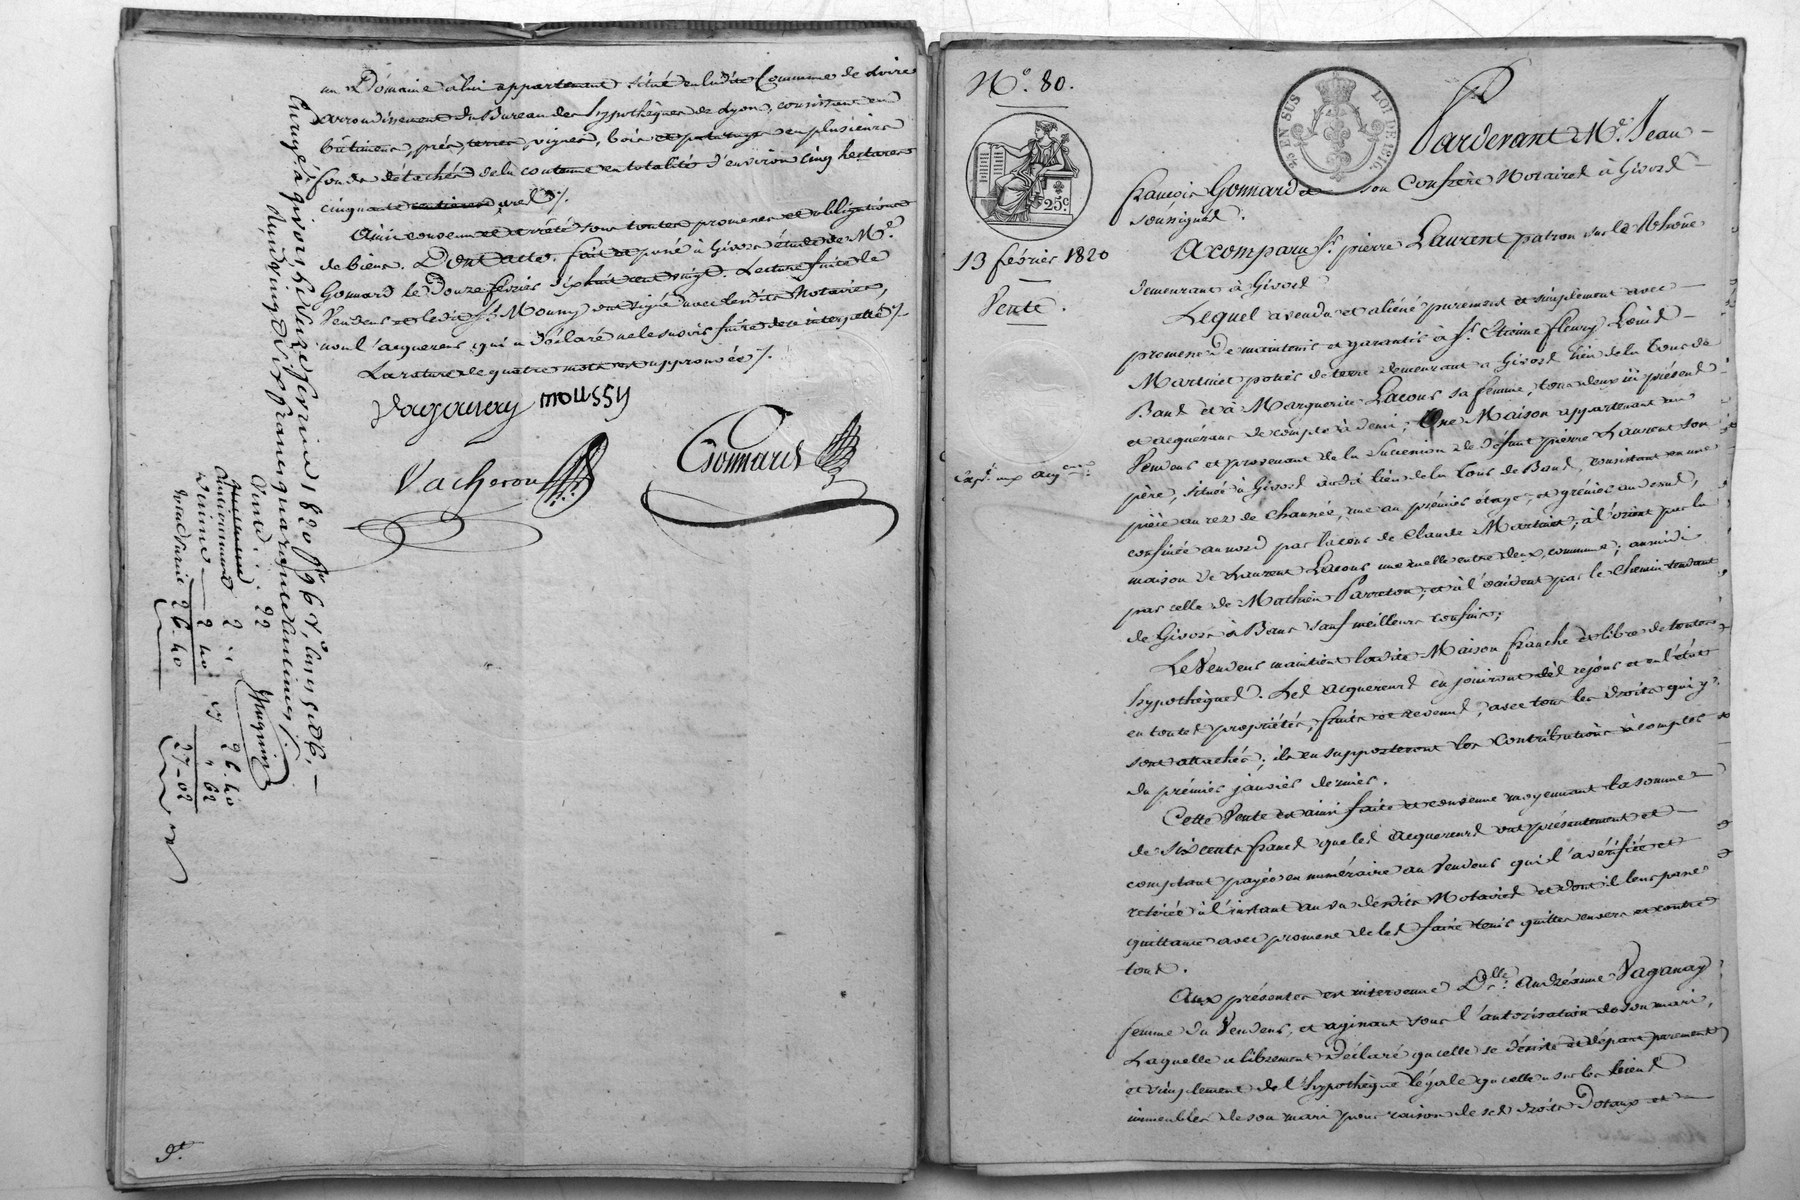 un Domaine à lui appartenant situé en ladite Commune de Loire
arrondissement du Bureau des hypothèques de Lyon, consistant en
bâtimens, prés, terres, vignes, bois et paturage en plusieurs
fonds détachés de la contenue en totalité d'environ cinq hectares
cinquante ares ./.
Ainsi convenu et arrêté sous toutes promesses et obligations
de biens. Dont acte. fait et passé à Givors étude de Me.
Gonnard le Douze février dix huit cent vingt. Lecture faite le
Vendeur et ledit Sr. Moussy ont signé avec lesdits Notaires,
non l'acquereur qui a déclaré ne le savoir faire de ce interpellé ./.
La rature de quatre mots est approuvée ./.
Vaganay moussy
Vacheron Gonnard
Enregé. à Givors le seize février 1820
reçu vingt six francs quarante centimes ./.
22
2 "
2 40
26. 40
26. 40
" 62
27-02
No. 80.
25c.
13 février 1820
Vente.
EN SUS
LOI DE 1816
Pardevant Me. Jean
françois Gonnard et son Confrère Notaires à Givors
soussignés.
A comparu Sr. pierre Laurent patron sur le Rhône
demeurant à Givors
Lequel a vendu et aliéné purement et simplement avec
promesse de maintenir et garantir à Sr. Etienne fleury Louis
Martinet potier de terre demeurant à Givors lieu de la Tour de
Bans et à Marguerite Lacour sa femme, tous deux ici présens
et acquérans de compte à demi; Une Maison appartenant au
Vendeur et provenant de la Succession de défunt pierre Laurent son
père, située à Givors audit lieu de la Tour de Bans, consistant en une
pièce au rez de chaussée, une au premier étage, et grenier au dessus,
confinée au nord par la cour de Claude Martinet, à l'orient par la
maison de Laurent Lacour une ruelle entre deux, commune; au midi
par celle de Mathieu Parreton, et à l'occident par le chemin tendant
de Givors à Bans sauf meilleurs confins;
Le Vendeur maintient ladite Maison franche et libre de toutes
hypothèques. Les acquereurs en jouiront dès ce jour et en l'état
en toutes propriétés, fruits et revenus, avec tous les droits qui y
sont attachés; ils en supporteront les contributions à compter
du premier janvier dernier.
Cette Vente est ainsi faite et convenue moyennant la somme
de six cents francs que les acquereurs ont présentement et
comptant payée en numéraire au Vendeur qui l'a vérifiée et
retirée à l'instant au vu desdits Notaires et dont il leur passe
quittance avec promesse de les faire tenir quittes envers et contre
tous.
Aux présentes est intervenue Dlle. Andréanne Vaganay
femme du Vendeur, et agissant sous l'autorisation de son mari,
Laquelle a librement déclaré qu'elle se désiste et départ purement
et simplement de l'hypothèque légale qu'elle a sur les biens
immeubles de son mari pour raison de ses droits Dotaux et